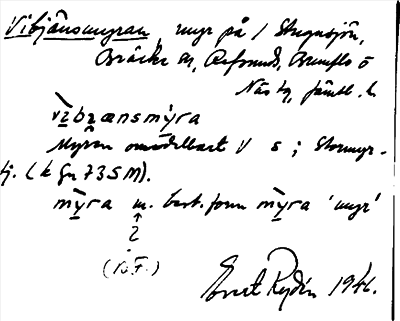 Vibjänsmyran, myr på / Stugusjön,
Bräcke sn, Refsund, Brunflo o
Näs tg, Jämtl. l.
vìbʒænsmỳra
Myren omedelbart V s ; Stormyr-
tj. (k Gn 73 S M).
mỳra m. best. form mỳra 'myr'
↑
2
(N.F.)
Evert Rydén 1946.